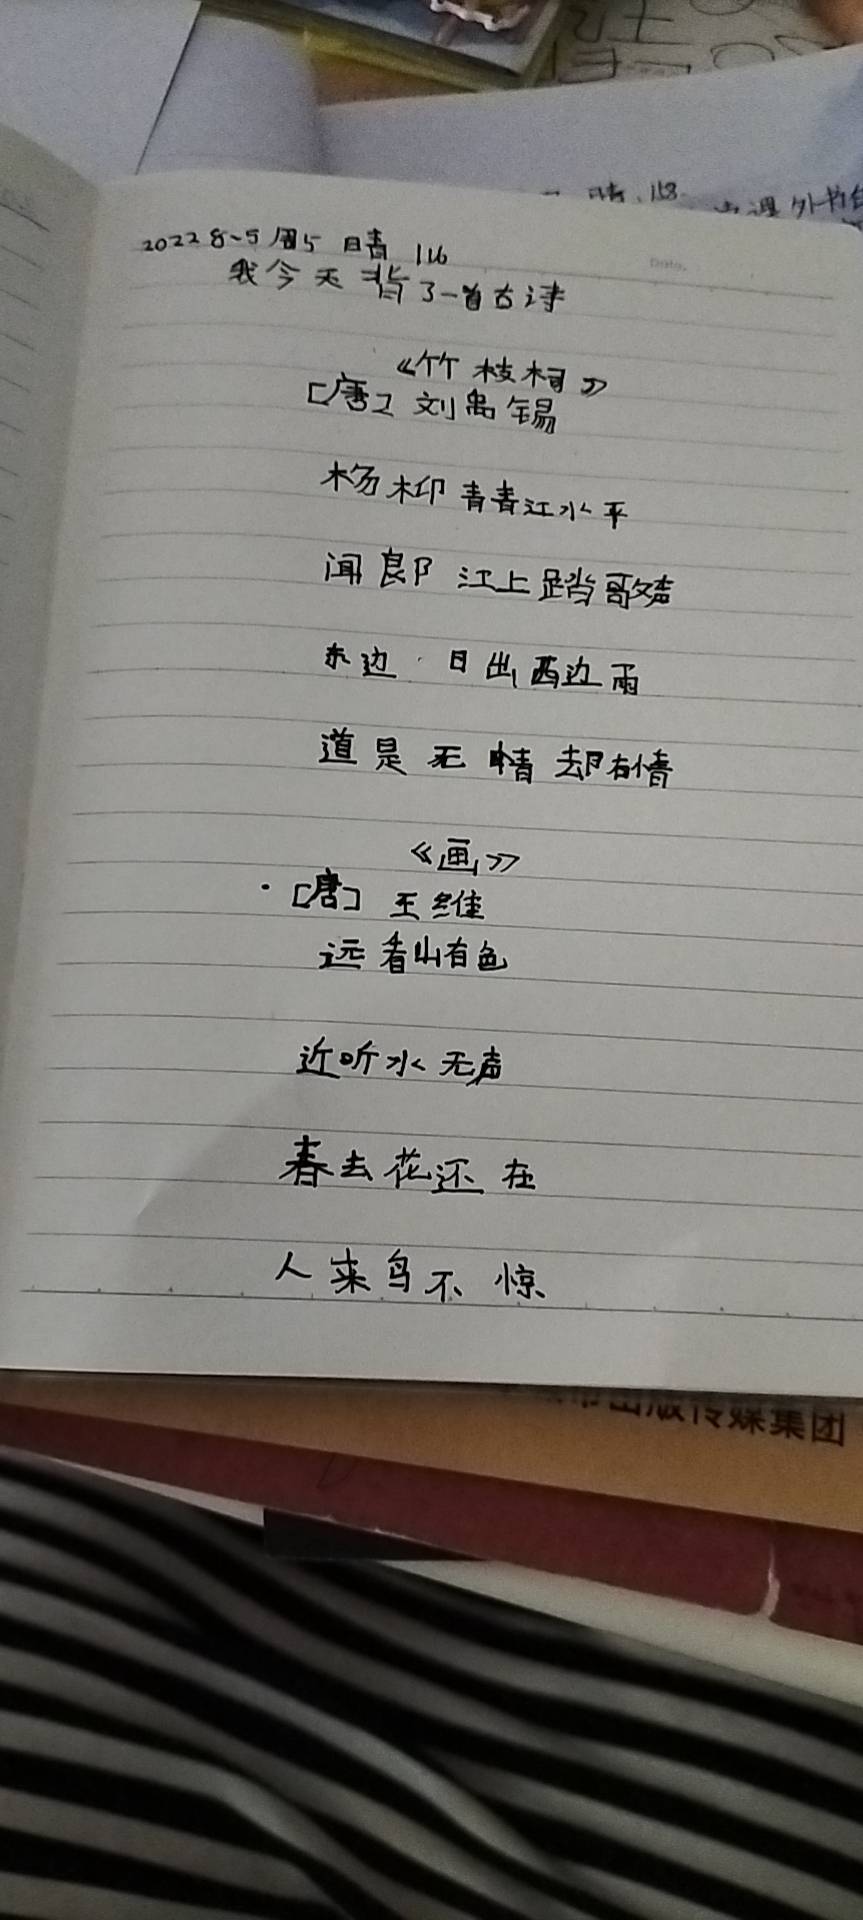 2022 8-5 周5 晴 116
我今天背了一首古诗
《竹枝词》
[唐] 刘禹锡
杨柳青青江水平
闻郎江上踏歌声
东边日出西边雨
道是无晴却有情
《画》
[唐] 王维
远看山有色
近听水无声
春去花还在
人来鸟不惊
出版传媒集团